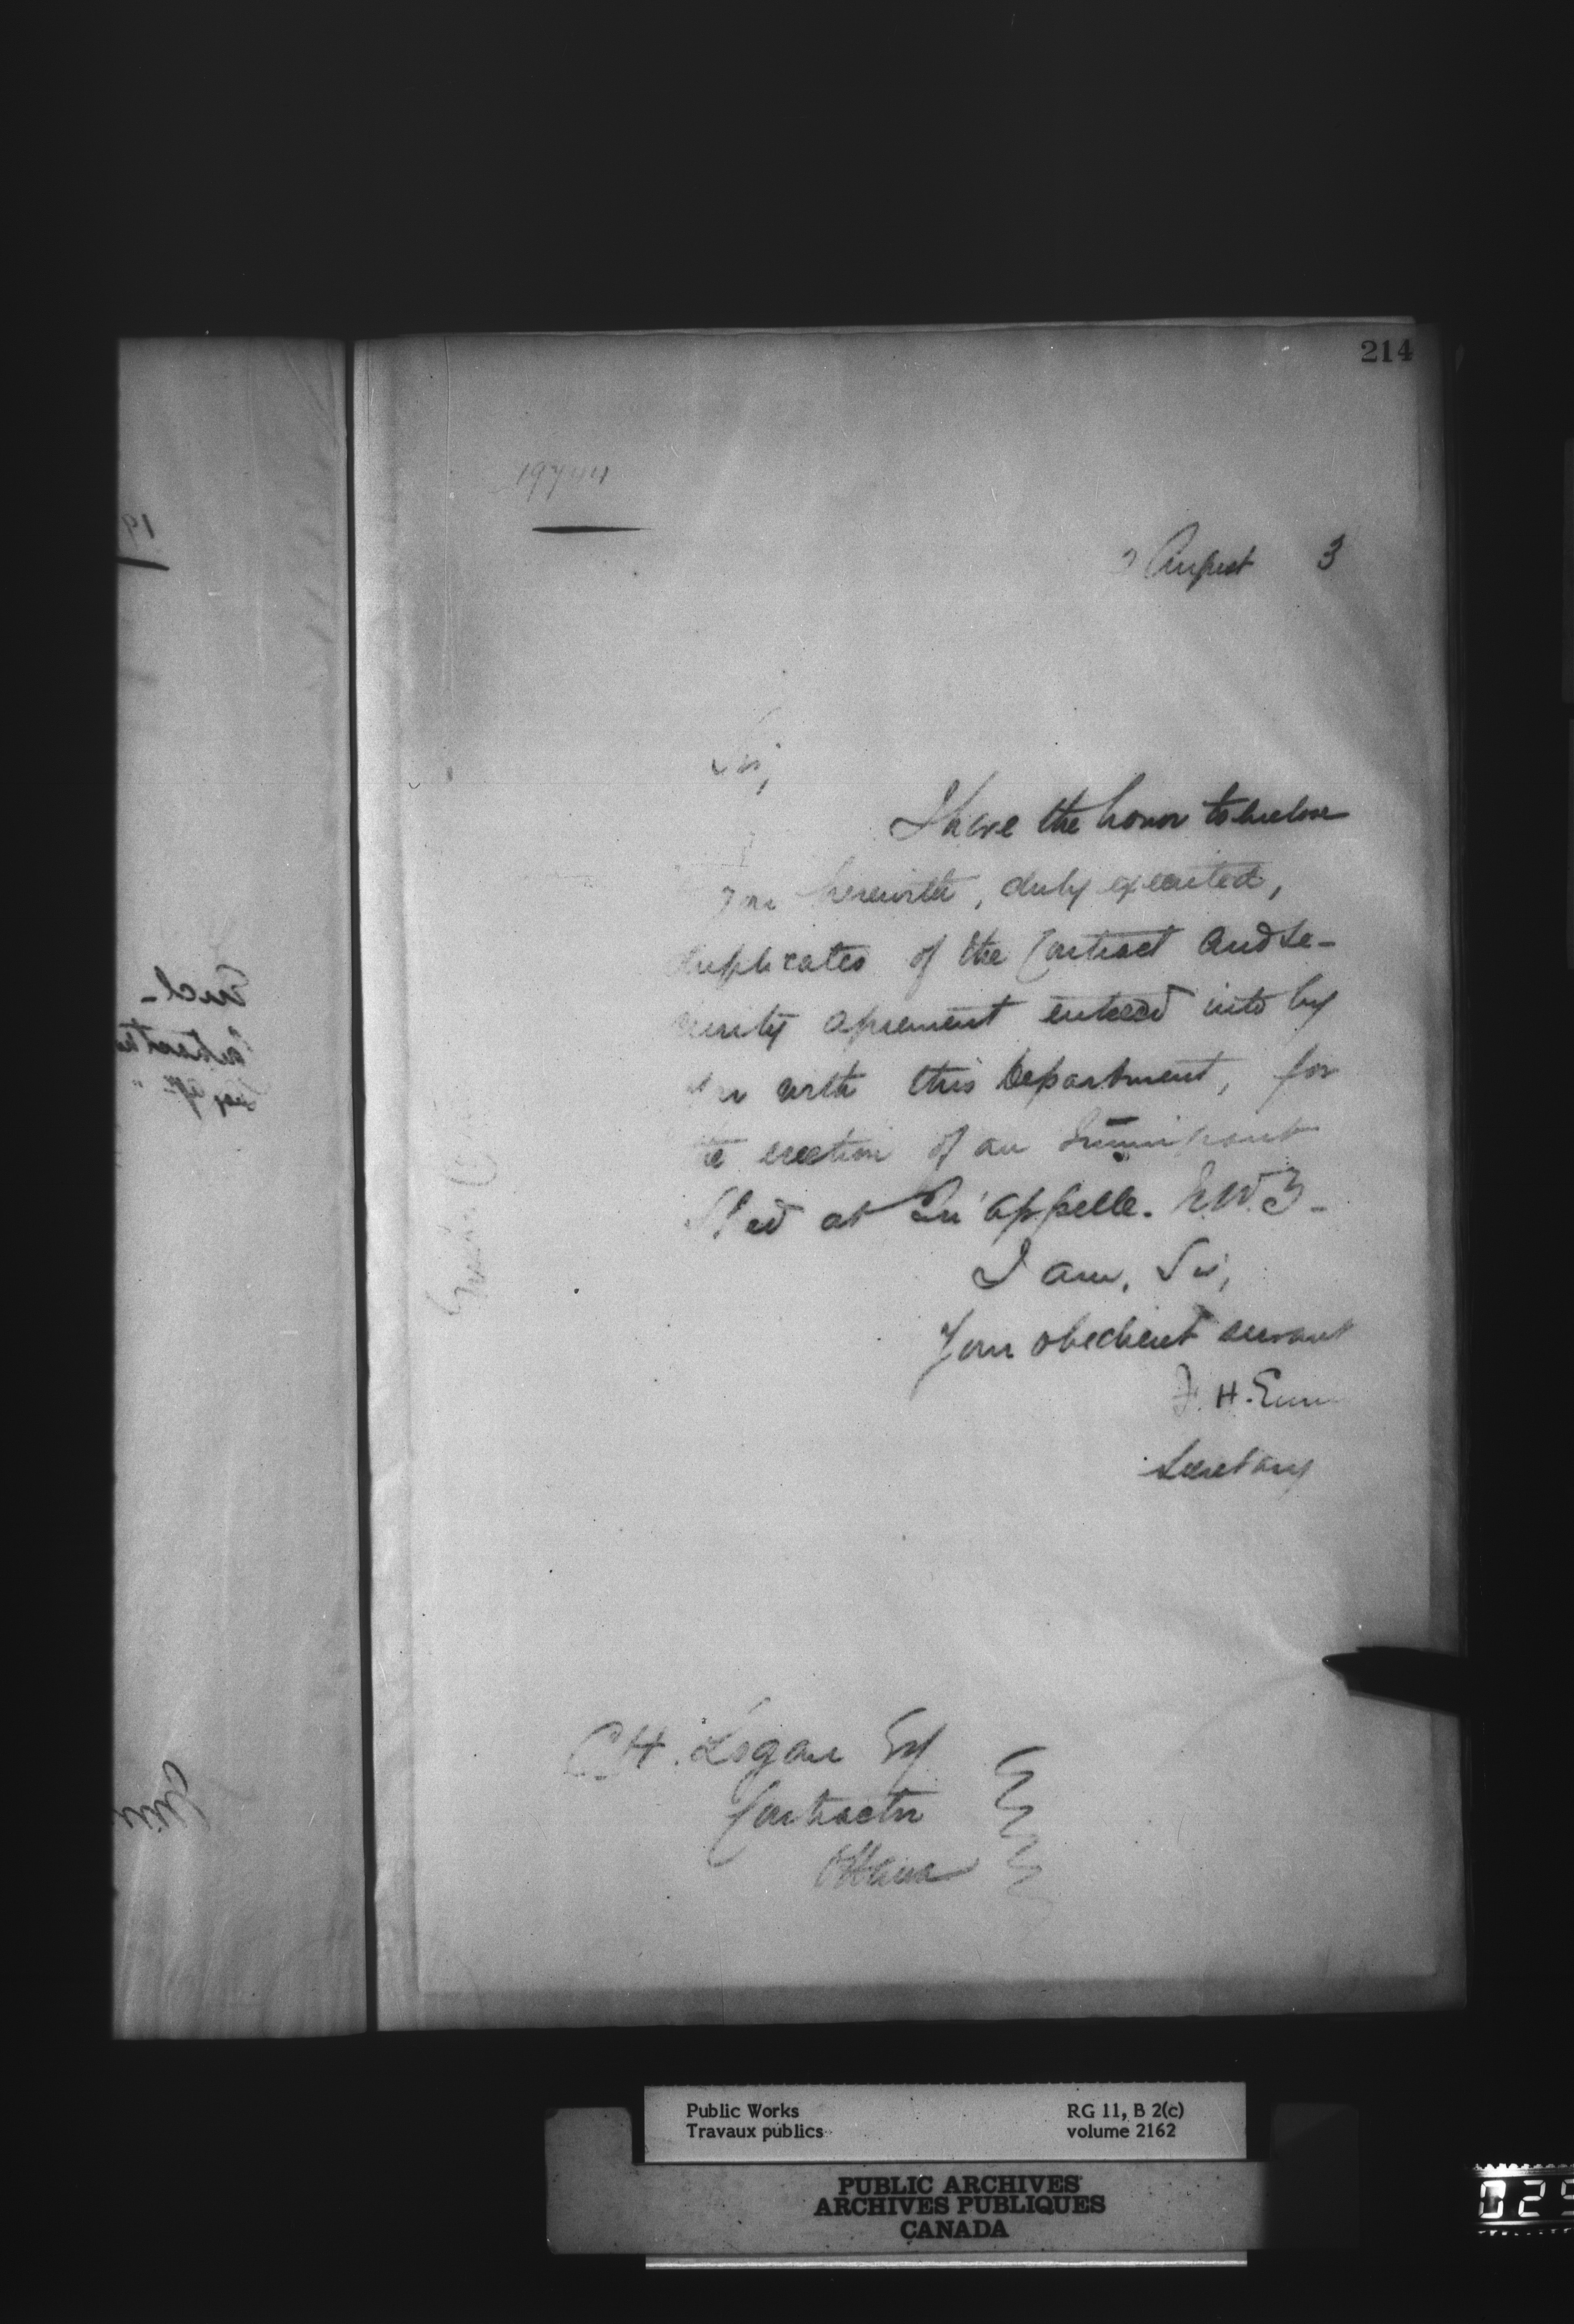 214
19744
August 3
Sir,
I have the honor to enclose
you herewith, duly executed,
duplicates of the Contract and Se-
curity agreement entered into by
you with this Department, for
the erection of an Immigrant
Shed at Qu'appelle. N.W.T-
I am, Sir,
Your obedient servant
F. H. Ennis
Secretary
C.H. Logan Esq
Contractor
Ottawa
Public Works
Travaux publics
RG 11, B 2(c)
volume 2162
PUBLIC ARCHIVES
ARCHIVES PUBLIQUES
CANADA